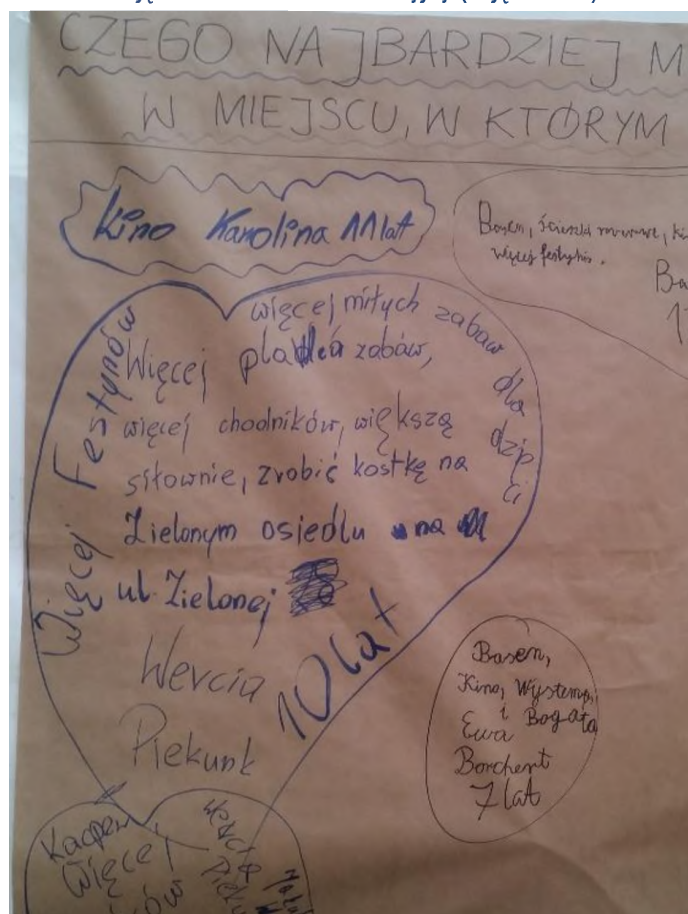 CZEGO NAJBARDZIEJ M
W MIEJSCU, W KTÓRYM
Kino Karolina 11 lat
Basen, ścieżki rowerowe, ki
więcej festynów.
Ba
1
Więcej Festynów
więcej miłych zabaw dla dzieci
Więcej placów zabaw,
więcej chodników, większą
siłownie, zrobić kostkę na
Zielonym osiedlu na
ul. Zielonej
Wercia
Piekunk
10 lat
Basen,
Kino, Występy,
i Bogata
Ewa
Borchert
7 lat
Kacper
Więcej
ów